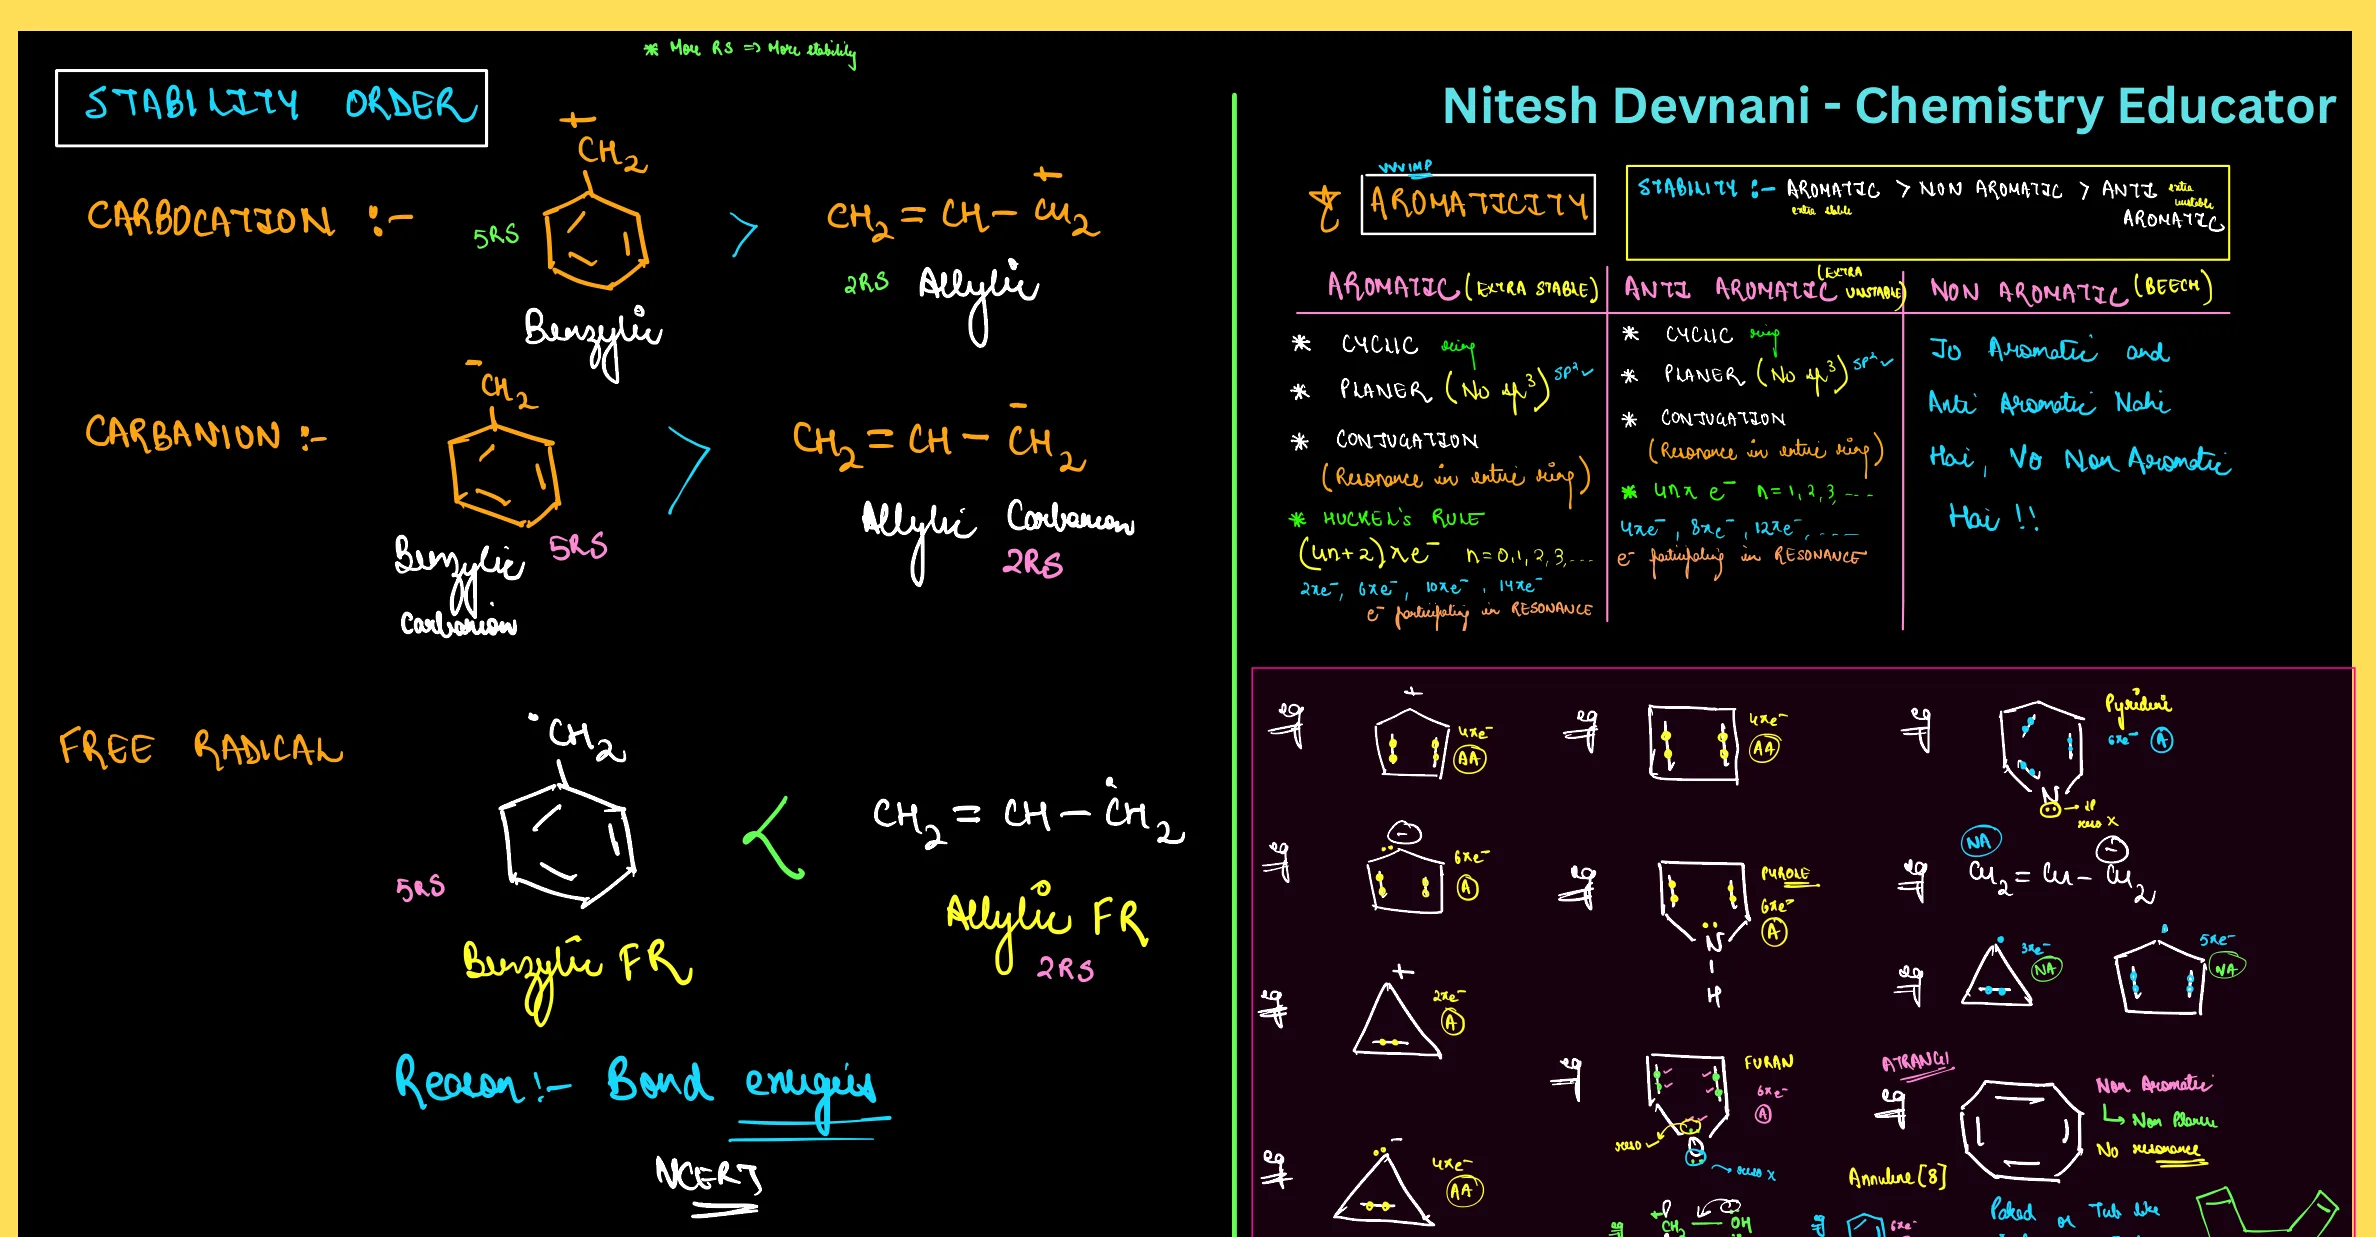 * More RS => More stability
STABILITY ORDER
CARBOCATION :-
+
CH2
5RS
Benzylic
>
CH2 = CH - CH2
+
2RS Allylic
CARBANION :-
-
CH2
5RS
Benzylic
Carbanion
>
CH2 = CH - CH2
-
Allylic Carbanion
2RS
FREE RADICAL
•CH2
5RS
Benzylic FR
<
CH2 = CH - ĊH2
Allylic FR
2RS
Reason :- Bond energies
NCERT
Nitesh Devnani - Chemistry Educator
VVVIMP
AROMATICITY
STABILITY :- AROMATIC > NON AROMATIC > ANTI
AROMATIC
extra stable
extra
unstable
AROMATIC (EXTRA STABLE)
* CYCLIC ring
* PLANER (No sp3) SP2 ✓
* CONJUGATION
(Resonance in entire ring)
* HUCKEL's RULE
(4n+2)πe- n=0,1,2,3,...
2πe-, 6πe-, 10πe-, 14πe-
e- participating in RESONANCE
ANTI AROMATIC (EXTRA UNSTABLE)
* CYCLIC ring
* PLANER (No sp3) SP2 ✓
* CONJUGATION
(Resonance in entire ring)
* 4nπ e- n=1,2,3,---
4πe-, 8πe-, 12πe-, ----
e- participating in RESONANCE
NON AROMATIC (BEECH)
Jo Aromatic and
Anti Aromatic Nahi
Hai, Vo Non Aromatic
Hai !!
eg + 4πe- AA
eg 4πe- AA
eg Pyridine
6πe- A
N
lp
reso X
eg - 6πe- A
eg PYROLE
6πe- A
N
H
eg NA
CH2 = CH - CH2
-
eg + 2πe- A
eg 3πe- NA
5πe- NA
eg FURAN
6πe- A
O
reso ✓
reso X
eg - 4πe- AA
ATRANGI
eg Non Aromatic
Non Planer
No resonance
Annulene [8]
eg CH2 - OH
eg 6πe-
or Tub like